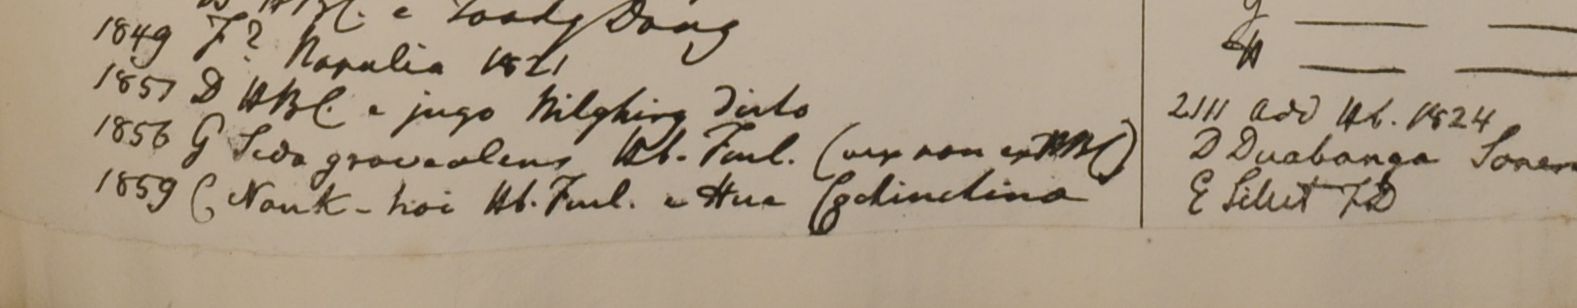 HBC. e Toady Dong
1849 F? Napalia 1821
1851 D HBC. e jugo Nilghiry dicto
1856 G Sida graveolens Hb. Finl. (vix non ex HBC)
1859 C Nauk-hoi Hb. Finl. e Hue Cochinchina
H
2111 add Hb. 1824
D Duabanga Soner
E Silhet FD